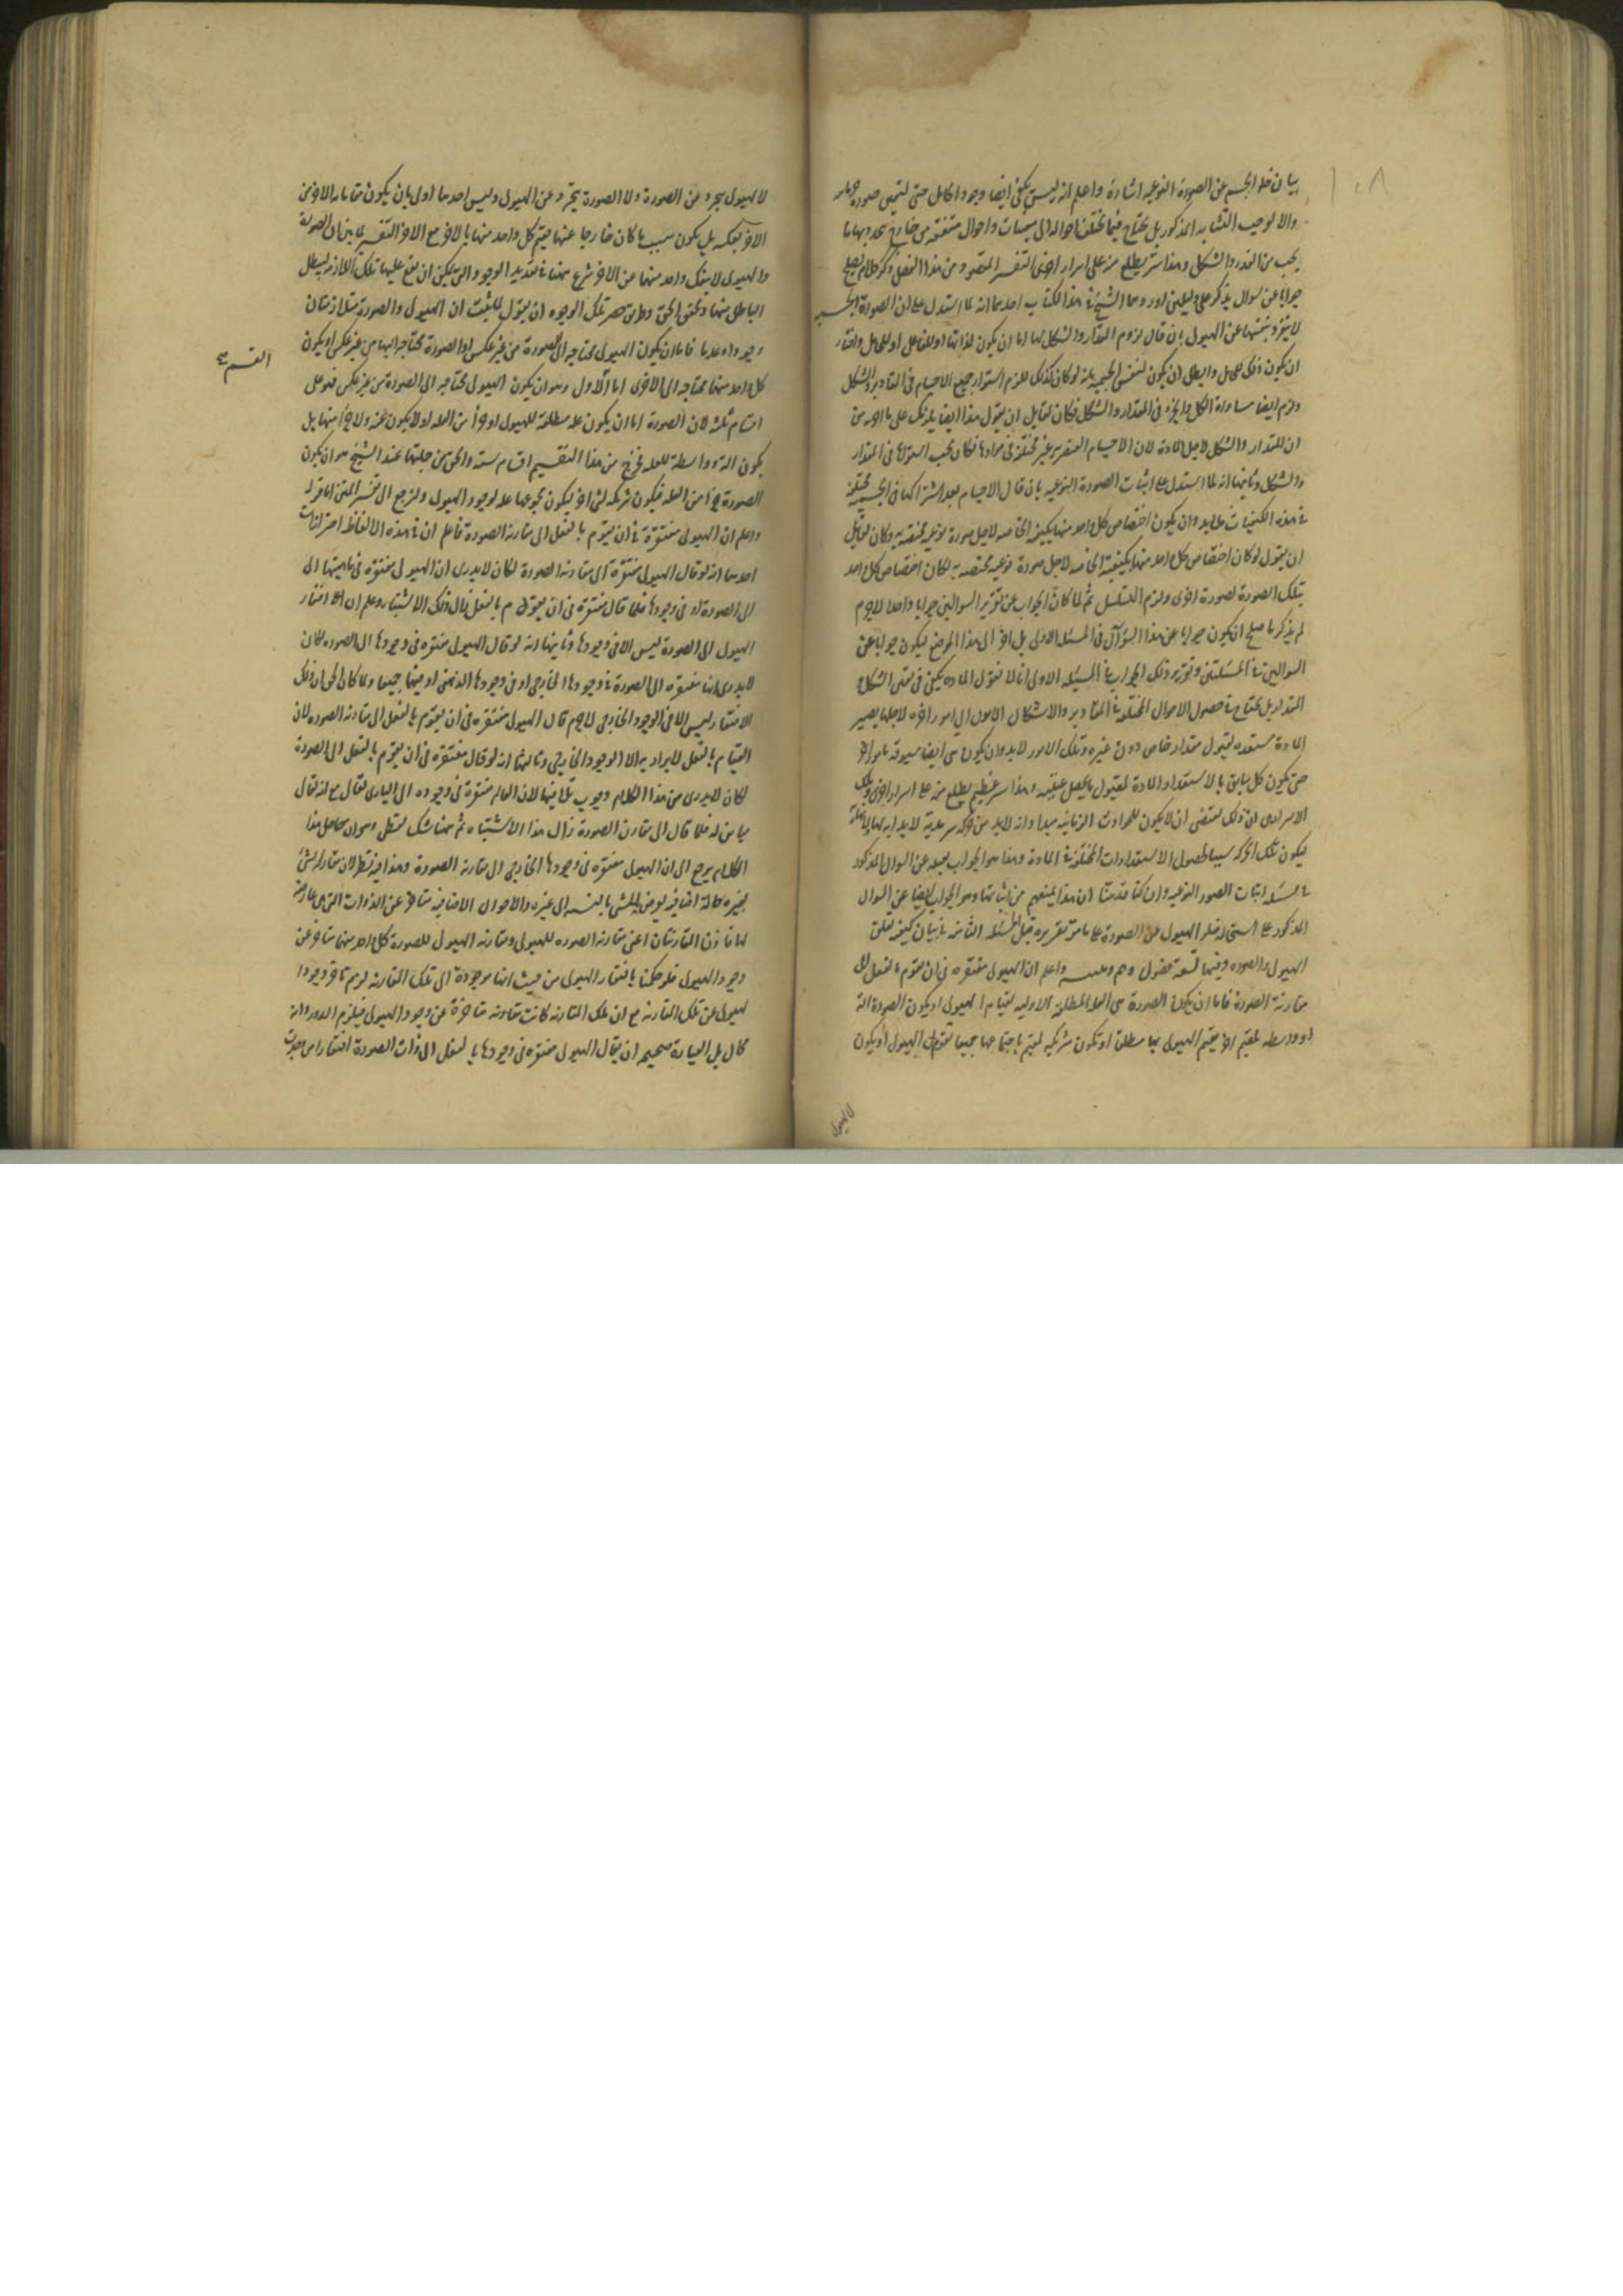 ١٠٨
بيان خلو الجسم عن الصورة النوعية اشارة واعلم انه ليس يكفي ايضا وجود الحامل حتى تتعين صورة جرمانية
والا لوجب التشابه المذكور بل يحتاج فيما يختلف احواله الى معينات واحوال متفقة من خارج يتحدد بها ما
يجب من القدر والشكل وهذا سر يطلع منه على اسرار اخرى التفسير المقصود من هذا الفصل ذكر كلام يصلح
جوابا عن سوال يذكر على دليلين اوردهما الشيخ في هذا الكتاب احدهما انه لما استدل على ان الصورة الجسمية
لا يتقرر شخصها عن الهيولى بان قال لزوم المقدار والشكل لها اما ان يكون لذاتها او للفاعل او للحامل واختار
ان يكون ذلك للحامل وابطل ان يكون لنفس الجسمية بانه لو كان كذلك للزم استواء جميع الاجسام في المقادير والشكل
ولزم ايضا مساواة الكل والجزء في المقدار والشكل فكان لقايل ان يقول هذا ايضا يلزمك على ما اخترته من
ان المقدار والشكل لاجل المادة لان الاجسام العنصرية غير مختلفة في موادها فكان يجب استواؤها في المقدار
والشكل وثانيهما انه لما استدل على اثبات الصورة النوعية بان قال الاجسام بعد اشتراكها في الجسمية مختلفة
في هذه الكيفيات فلا بد وان يكون اختصاص كل واحد منها بكيفيته الخاصة لاجل صورة نوعية مختصة به وكان لقايل
ان يقول لو كان اختصاص كل واحد منها بكيفيته الخاصة لاجل صورة نوعية مختصة به لكان اختصاص كل واحد
بتلك الصورة لصورة اخرى ولزم التسلسل ثم لما كان الجواب عن تقرير السوالين جوابا واحدا لا جرم
لم يذكر ما صلح ان يكون جوابا عن هذا السوآل في المسئلة الاولى بل اخر الى هذا الموضع ليكون جوابا عن
السوالين في المسئلتين وتقرير ذلك الجواب في المسئلة الاولى انا لا نقول المادة يكفي في معنى الشكل و
المقدار بل يحتاج في حصول الاحوال المختلفة في المقادير والاشكال الامور الى امور اخر لاجلها يصير
المادة مستعدة لقبول مقدار خاص دون غيره وتلك الامور لابد وان يكون هي ايضا مسبوقة بامور اخر
حتى يكون كل سابق بالاستعداد المادة لقبول ما يحصل عقيبه وهذا سر عظيم يطلع منه على اسرار اخرى وتلك
الاسرار هي ان ذلك يقتضي ان لا يكون للحوادث الزمانية مبدا وانه لابد من حركة سرمدية لا بداية لها ولا نهاية
ليكون تلك الحركة سببا لحصول الاستعدادات المختلفة في المادة وهذا هو الجواب بعينه عن السوال المذكور
في مسئلة اثبات الصور النوعية وان كنا قد بينا ان هذا يمنعهم من اثباتها وهو الجواب ايضا عن السوال
المذكور على استحالة خلو الهيولى عن الصورة على ما مر تقريره قبل المسئلة الثامنة في بيان كيفية تعلق
الهيولى والصورة وفيها تسعة فصول وهم وتنبيه واعلم ان الهيولى مفتقرة في ان تقوم بالفعل الى
مقارنة الصورة فاما ان يكون الصورة هي العلة المطلقة الاولية لقيام الهيولى او يكون الصورة آلة
او واسطة لمقيم اخر يقيم الهيولى بها مطلقا او تكون شريكة لمقيم باجتماعهما جميعا تقوم الهيولى او يكون
لا الهيولى
لا الهيولى تتجرد عن الصورة ولا الصورة تتجرد عن الهيولى وليس احدهما اولى بان يكون مقاما به الاخر من
الاخر بعكسه بل يكون سبب ما كان خارجا عنهما يقيم كل واحد منهما بالاخر مع الاخر التفسير لما بين ان الصورة
والهيولى لا ينفك واحد منهما عن الاخر شرع ههنا في تعديد الوجوه التي يمكن ان يقع عليها تلك الملازمة ليبطل
الباطل منها ويحق الحق وطريق حصر تلك الوجوه ان يقول لما ثبت ان الهيولى والصورة متلازمتان
وجودا وعدما فاما ان يكون الهيولى محتاجة الى الصورة من غير عكس او الصورة محتاجة اليها من غير عكس او يكون
القسم
كل واحد منهما محتاجة الى الاخرى اما الاول وهو ان يكون الهيولى محتاجة الى الصورة من غير عكس فهو على
اقسام ثلثة لان الصورة اما ان يكون علة مطلقة للهيولى او جزءا من العلة او لا يكون علة ولا جزءا منها بل
يكون آلة وواسطة للعلة فخرج من هذا التقسيم اقسام ستة والحق من جملتها عند الشيخ هو ان يكون
الصورة جزءا من العلة فيكون شريكة لشئ اخر ليكون مجموعهما علة لوجود الهيولى ولنرجع الى تفسير المتن اما قوله
واعلم ان الهيولى مفتقرة في ان تقوم بالفعل الى مقارنة الصورة فاعلم ان في هذه الالفاظ احترازات
احدها انه لو قال الهيولى مفتقرة الى مقارنة الصورة لكان لا يدرى ان الهيولى مفتقرة في ماهيتها الى
الى الصورة او في وجودها فلما قال مفتقرة في ان يقوم بالفعل زال ذلك الاشتباه وعلم ان افتقار
الهيولى الى الصورة ليس الا في وجودها وثانيها انه لو قال الهيولى مفتقرة في وجودها الى الصورة لكان
لا يدرى انها مفتقرة الى الصورة في وجودها الخارجي او في وجودها الذهني او فيهما جميعا ولما كان الحق ان ذلك
الافتقار ليس الا في الوجود الخارجي لا جرم قال الهيولى مفتقرة في ان يقوم بالفعل الى مقارنة الصورة لان
القيام بالفعل لا يراد به الا الوجود الخارجي وثالثها انه لو قال مفتقرة في ان يقوم بالفعل الى الصورة
لكان لا يدرى من هذا الكلام وجوب تلاقيهما لان العالم مفتقرة في وجوده الى الباري تعالى مع انه تعالى
مباين له فلما قال الى مقارنة الصورة زال هذا الاشتباه ثم ههنا شك لفظي وهو ان حاصل هذا
الكلام يرجع الى ان الهيولى مفتقرة في وجودها الخارجي الى مقارنة الصورة وهذا فيه نظر لان مقارنة الشئ
لغيره حالة اضافية يعرض للشئ بالنسبة الى غيره والاحوال الاضافية متاخرة عن الذوات التي هي عارضة
لها فاذن المقارنتان اعني مقارنة الصورة للهيولى ومقارنة الهيولى للصورة كل واحد منهما متاخر عن
وجود الهيولى فلو حكمنا بافتقار الهيولى من حيث انها موجودة الى تلك المقارنة لزم تاخر وجود
الهيولى عن تلك المقارنة مع ان تلك المقارنة كانت متاخرة عن وجود الهيولى فيلزم الدور وانه
محال بل العبارة الصحيحة ان يقال الهيولى مفتقرة في وجودها بالفعل الى ذات الصورة افتقارا